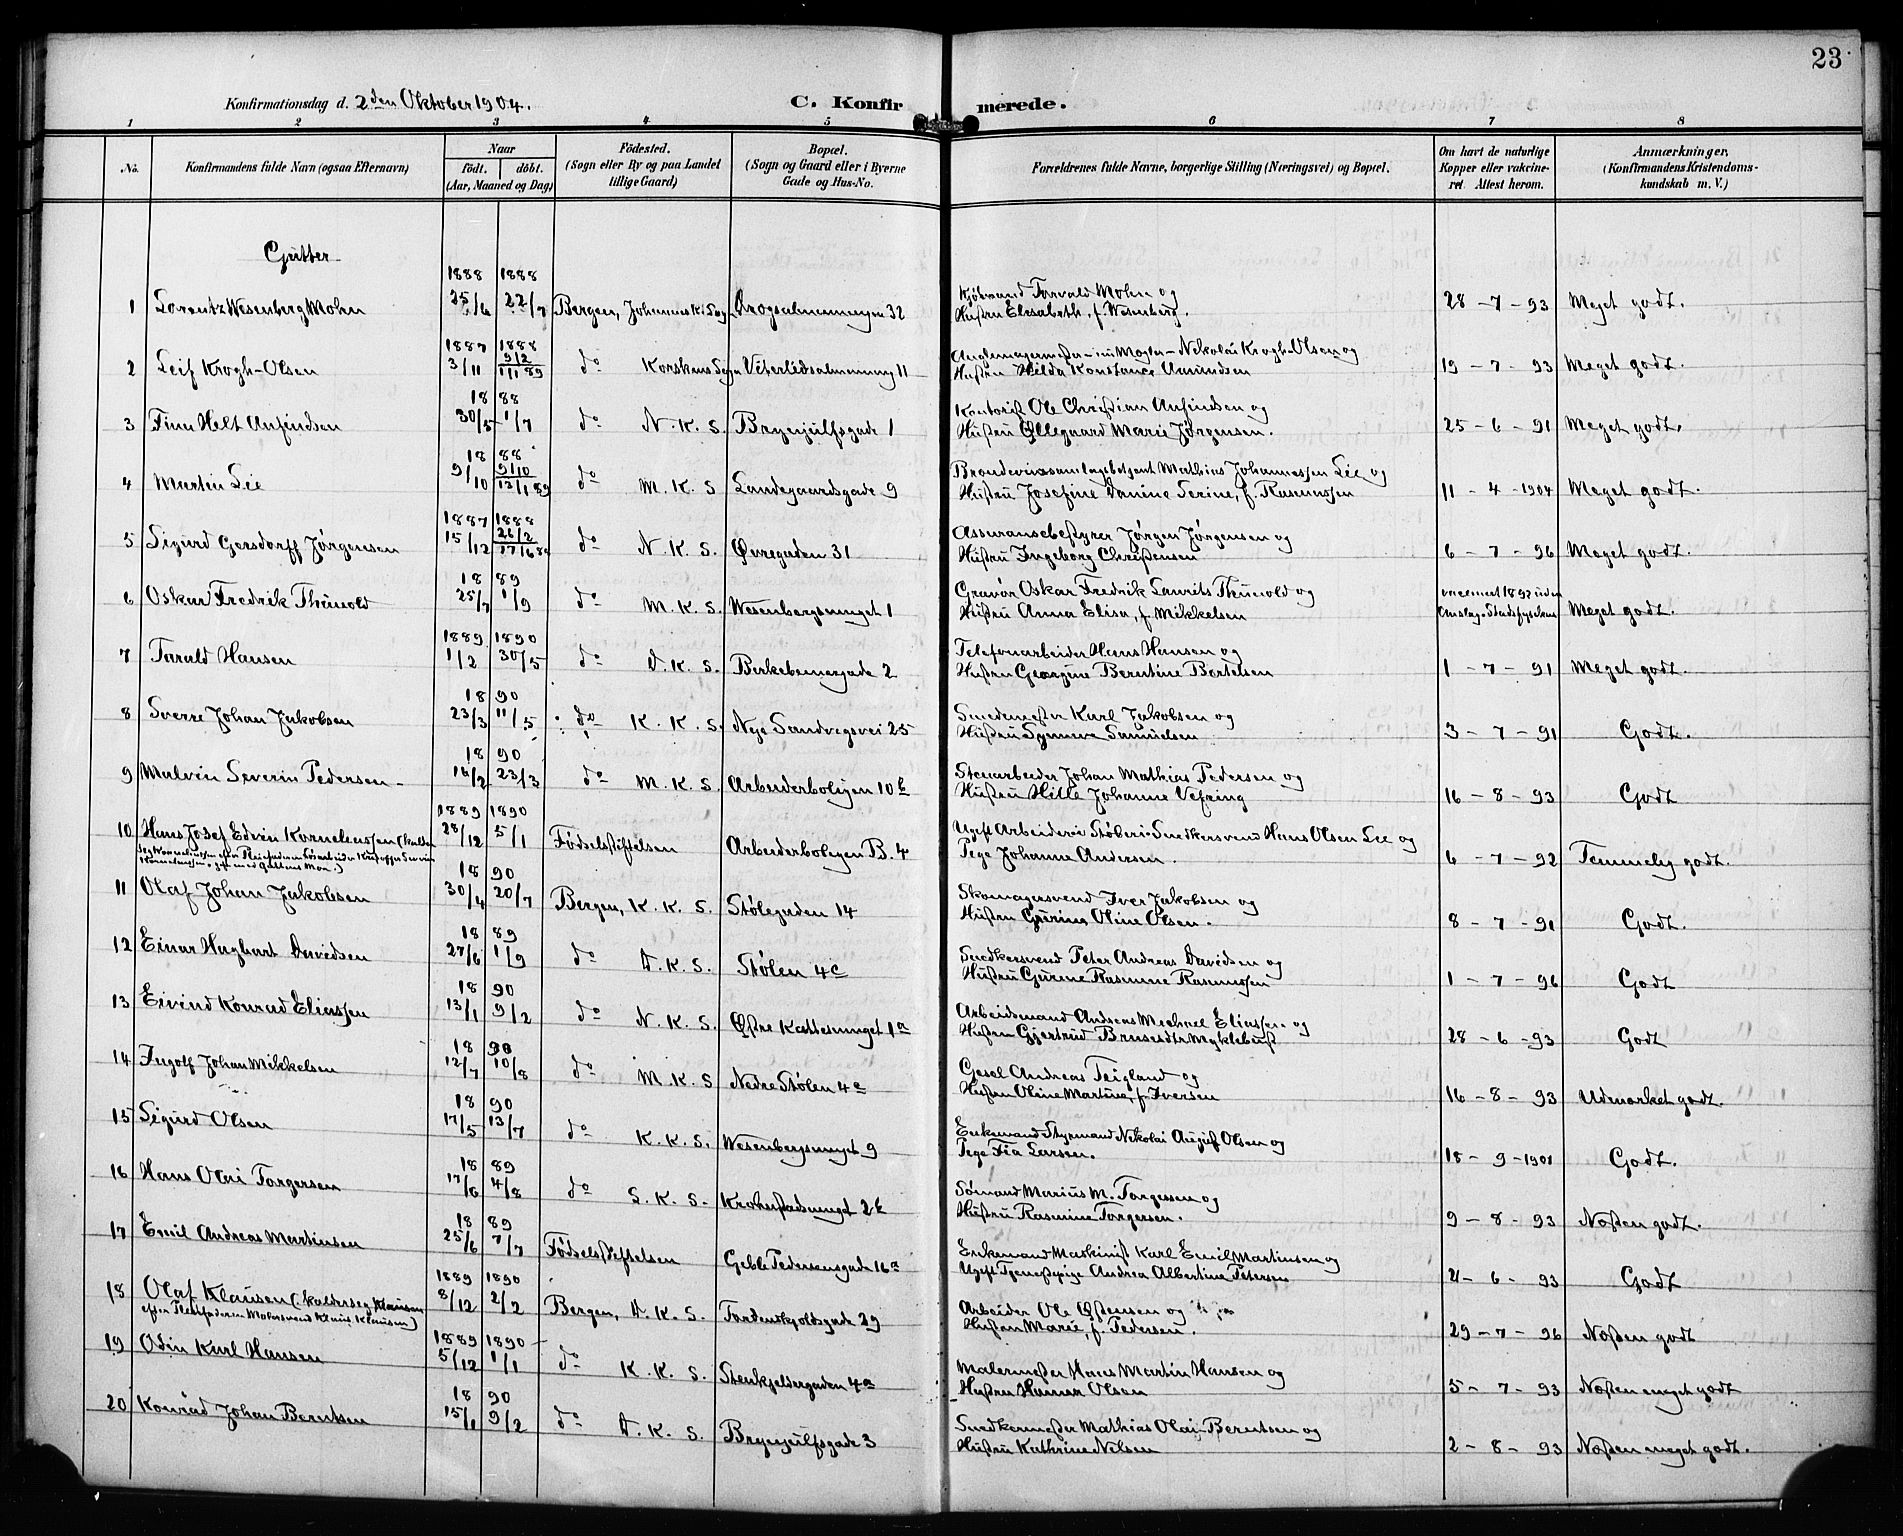 23
Konfirmationsdag d. 2den Oktober 1904.
C. Konfirmerede.
1 2 3 4 5 6 7 8
No. Konfirmandens fulde Navn (ogsaa Efternavn) Naar født. døbt. (Aar, Maaned og Dag) Fødested. (Sogn eller By og paa Landet tillige Gaard) Bopæl. (Sogn og Gaard eller i Byerne Gade og Hus-No. Forældrenes fulde Navne, borgerlige Stilling (Næringsvei) og Bopæl. Om havt de naturlige Kopper eller vakcineret. Attest herom. Anmærkninger, (Konfirmandens Kristendomskundskab m. V.)
Gutter
1888 1888
1 Lorentz Wesenberg Mohn 25/6 22/7 Bergen, Johannes K. Sogn Krogsalmenningen 32 Kjøbmand Torvald Mohn og
Hustru Elisabeth, f. Wesenberg. 28-7-93 Meget godt.
1887 1888
2 Leif Krogh-Olsen 3/11 9/2 1/1 89 do Korskirkens Sogn Viterlidsalmenning 11 Nikolai Krogh-Olsen og
Hustru Hilda Konstance Amundsen 19-7-93 Meget godt.
18 88
3 Finn Helt Anfindsen 30/5 1/7 do N. K. S. Brynjulfsgade 1 Kontorist Ole Christian Anfindsen og
Hustru Øllegaard Marie Jørgensen. 25-6-91 Meget godt.
18 88
4 Martin Lie 9/10 9/10 12/1 89 do M. K. S Landegaardsgade 9 Brændevinssamlagsbetjent Mathias Johannessen Lie og
Hustru Josefine Danine Serine, f. Rasmussen 11-4-1904 Meget godt.
1887 1888
5 Sigurd Gersdorff Jørgensen 15/12 26/2 17/6 88 do N. K. S. Øvregaden 31 Assuransebestyrer Jørgen Jørgensen og
Hustru Ingeborg Christensen 6-7-96 Meget godt.
18 89
6 Oskar Fredrik Thuvold 25/7 1/9 do M. K. S. Wesenbergsmuget 1 Gravør Oskar Fredrik Laurits Thuvold og
Hustru Anna Elisa, f. Mikkelsen vaccineret 1893 uden
Anslag. Stadsfysikus Meget godt.
1889 1890
7 Tarald Hansen 1/2 30/5 do D. K. S. Birkebeinergade 2 Telefonarbeider Hans Hansen og
Hustru Georgine Berntine Bertelsen 1-7-91 Meget godt.
18 90
8 Sverre Johan Jakobsen 23/3 11/5 do K. K. S. Nye Sandvigsvei 25 Smedemester Karl Jakobsen og
Hustru Synneve Samuelsen 3-7-91 Godt.
18 90
9 Malvin Severin Pedersen 16/2 23/3 do M. K. S. Arbeiderboligen 10b Stenarbeider Johan Mathias Pedersen og
Hustru Hille Johanne Vefring 16-8-93 Godt
1889 1890
10 Hans Josef Edvin Kornelenssen (kalder 28/12 5/1 Fødselsstiftelsen Arbeiderboligen B. 4 Ugift Arbeider i Støberi Snedkersvend Hans Olsen Lie og
Pige Johanne Andersen. 6-7-92 Temmelig godt.
18 90
11 Olaf Johan Jakobsen 30/4 20/7 Bergen, K. K. S. Stølegaden 14 Skomagersvend Iver Jakobsen og
Hustru Gurina Oline Olsen. 8-7-91 Godt.
18 89
12 Einar Hagbart Davidsen 27/6 1/9 do D. K. S. Stølen 4c Snedkersvend Peter Andreas Davidsen og
Hustru Gurine Rasmine Rasmussen 1-7-96 Godt
18 90
13 Eivind Konrad Eliassen 13/1 9/2 do N. K. S. Østre Kattesmuget 1a Arbeidsmand Andreas Michael Eliassen og
Hustru Gjertrud Brusesdtr Myklebust 28-6-93 Godt
18 90
14 Ingolf Johan Mikkelsen 12/7 10/8 do M. K. S Nedre Stølen 4e Gesel Andreas Teigland og
Hustru Oline Martine, f. Iversen 16-8-93 Udmærket godt.
18 90
15 Sigurd Olsen 17/5 13/7 do K. K. S. Wesenbergsmuget 9 Enkemand Styrmand Nikolai August Olsen og
Pige Fia Larsen. 18-9-1901 Godt.
18 89
16 Hans Olai Torgersen 17/6 4/8 do S. K. S. Krohnstadsmuget 2b Sømand Marius M. Torgersen og
Hustru Rasmine Torgersen. 9-8-93 Næsten godt.
18 89
17 Emil Andreas Martinsen 25/6 7/7 Fødselsstiftelsen Geble Pedersensgade 16a Enkemand Maskinist Karl Emil Martinsen og
Ugift Tjenestepige Andrea Albertine Petersen 21-6-93 Godt
1889 1890
18 Olaf Klausen (kalder seg Klausen 8/12 2/2 Bergen, D. K. S. Tordenskjoldsgade 29 Arbeider Ole Østensen og
efter Pleiefaderen Malersvend Klaus Klausen) Hustru Marie, f. Pedersen. 29-7-96 Næsten godt
1889 1890
19 Odin Karl Hansen 5/12 1/1 do K. K. S. Stenkjelsergaden 4a Malermester Hans Martin Hansen og
Hustru Hanna Olsen 5-7-93 Næsten meget godt
18 90
20 Konrad Johan Berentsen 15/1 9/2 do D. K. S. Brynjulfsgade 3 Snedkermester Mathias Olai Berentsen og
Hustru Kathrine Nilsen 2-8-93 Næsten meget godt.